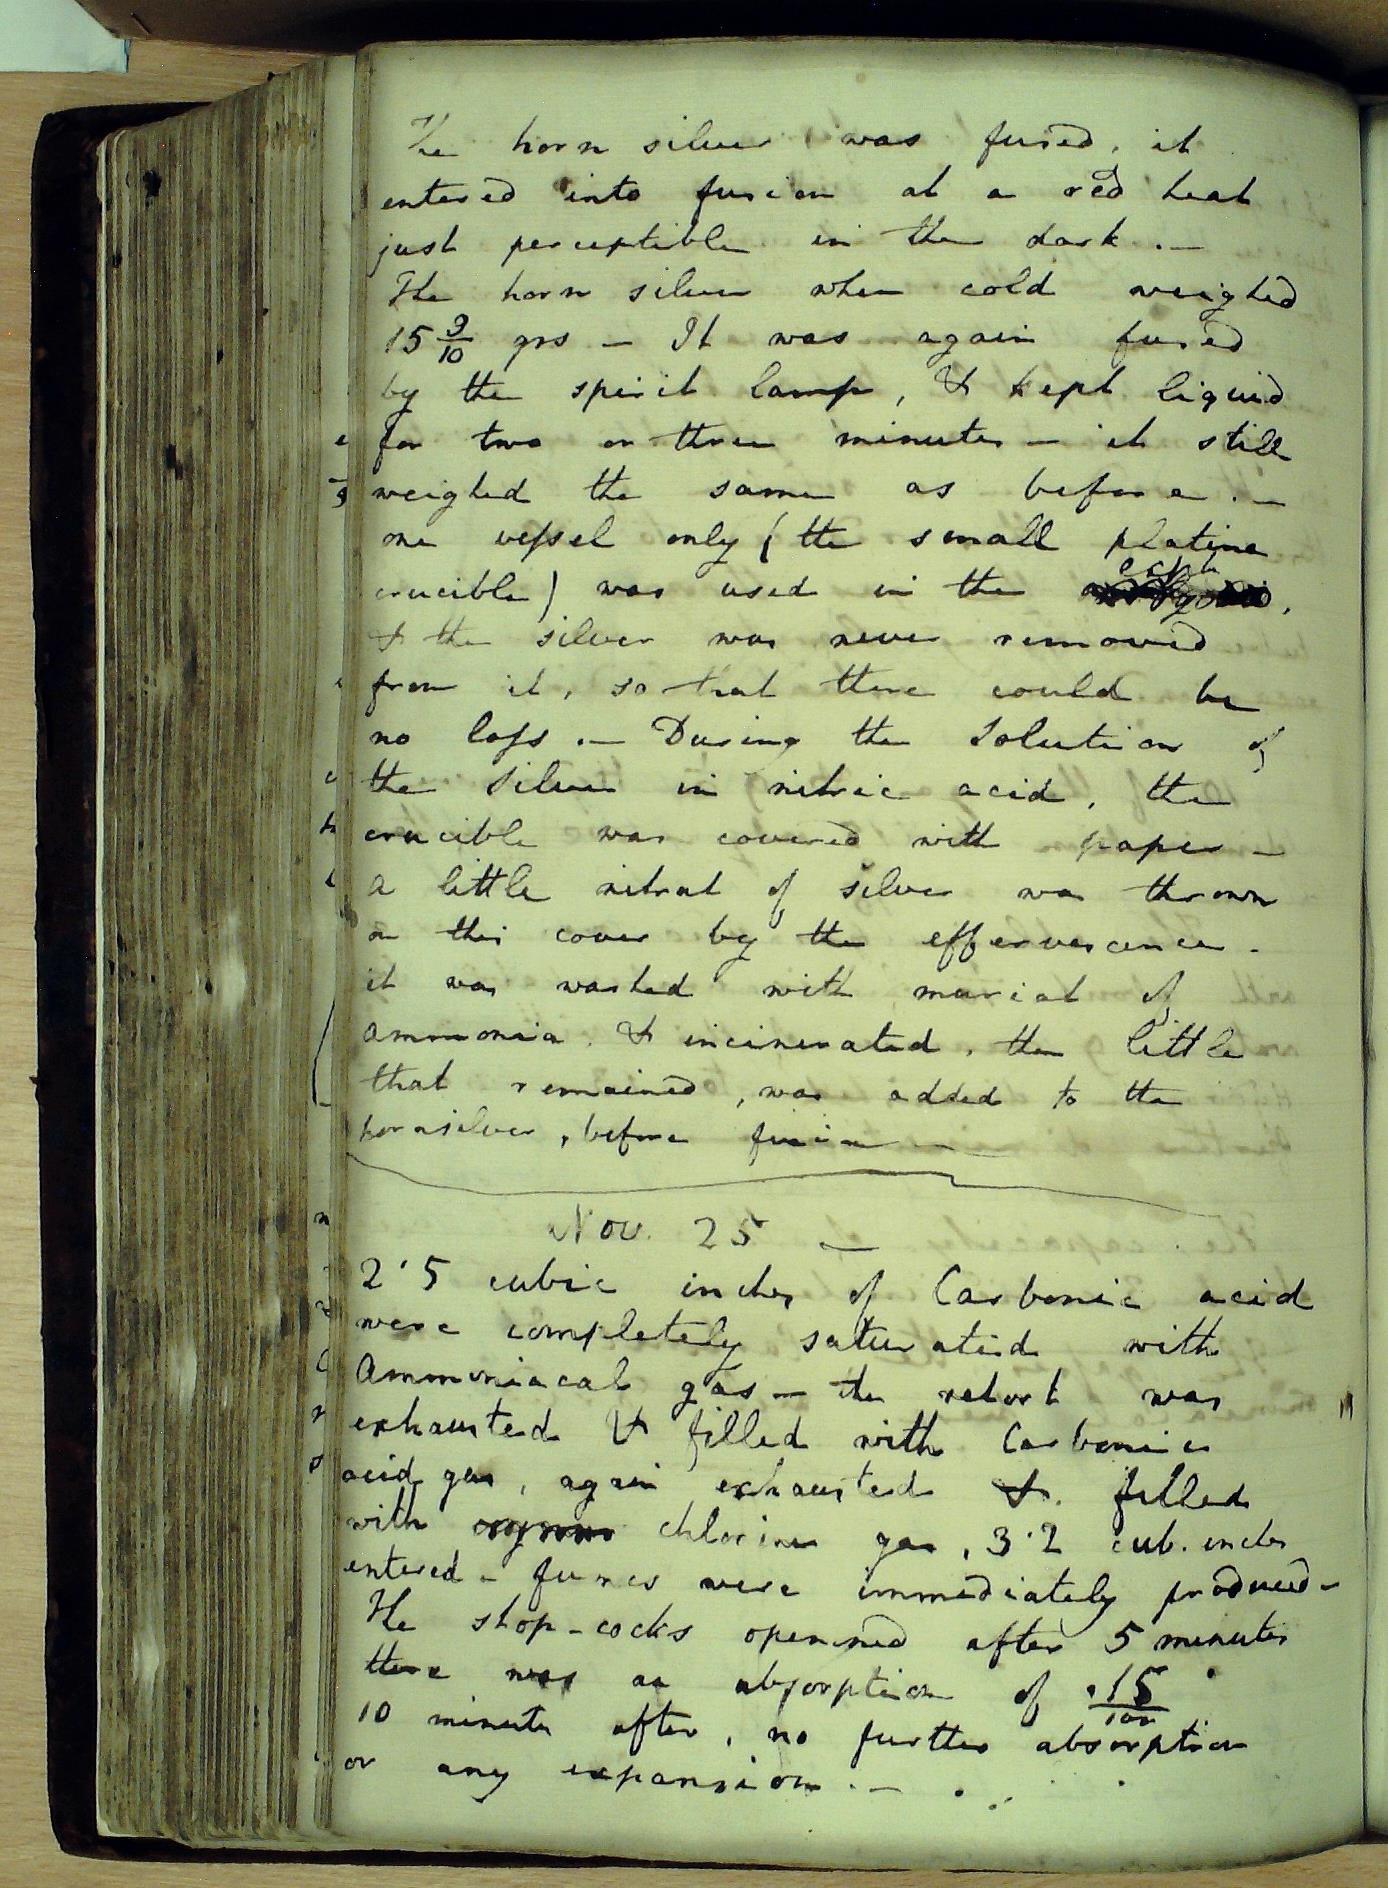 The horn silver was fused, it
entered into fusion at a red heat
just perceptible in the dark. —
The horn silver when cold weighed
15 9/10 grs — It was again fused
by the spirit lamp, & kept liquid
for two or three minutes — it still
weighed the same as before. —
one vessel only (the small platina
crucible) was used in the expt
& the silver was never removed
from it, so that there could be
no loss. — During the solution of
the silver in nitric acid, the
crucible was covered with paper —
a little nitrat of silver was thrown
on this cover by the effervescence.
it was washed with muriat of
ammonia & incinerated, the little
that remained, was added to the
hornsilver, before fusion —
Nov. 25 —
2·5 cubic inches of Carbonic acid
were completely saturated with
Ammoniacal gas — the retort was
exhausted & filled with Carbonic
acid gas, again exhausted & filled
with chlorine gas, 3·2 cub. inches
entered — fumes were immediately produced —
The stop-cocks openned after 5 minutes
there was an absorption of ·15/100
10 minutes after, no further absorption
or any expansion. —